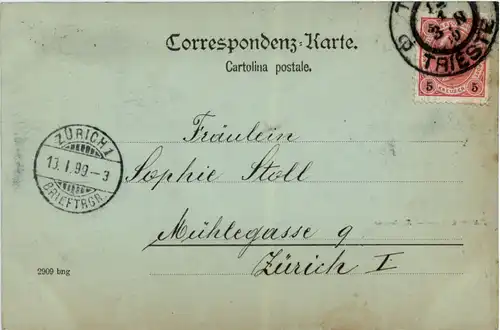 TRIESTE
5 5
Correspondenz-Karte.
Cartolina postale.
Fräulein
Sophie Stoll
Mühlegasse 9
Zürich I
ZÜRICH 1
13.I.99-3
BRIEFTRGR.
2909 bmg